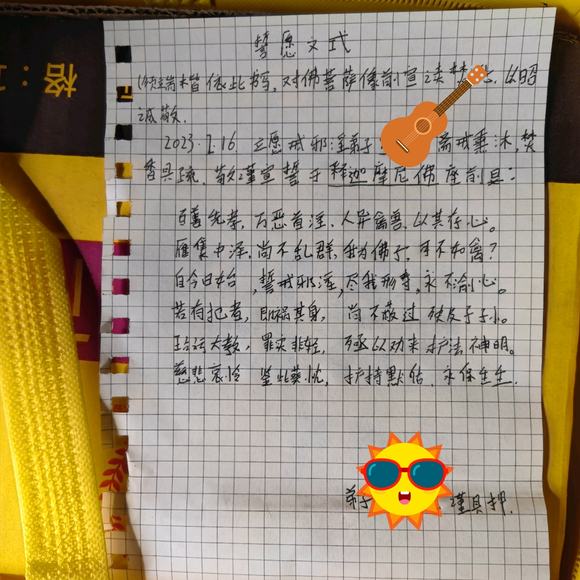 誓愿文式
(须端楷依此书,对佛菩萨像前宣读焚化,以昭
诚敬
2023.7.16 立愿戒邪淫弟子 斋戒熏沐,焚
香具疏,敬谨宣誓于释迦摩尼佛座前具:
百善先孝,万恶首淫,人异禽兽,以其存心。
雁集中泽,尚不乱群,我为佛子,可不如禽?
自今日始,誓戒邪淫,尽我形寿,永不渝心。
若有犯者,即祸其身,尚不蔽过 殃及子孙。
玷污太教,罪实非轻,殛以功来护法神明。
慈悲哀怜 鉴此葵忱,护持默佑 永保生生.
弟子 谨具押.
格: